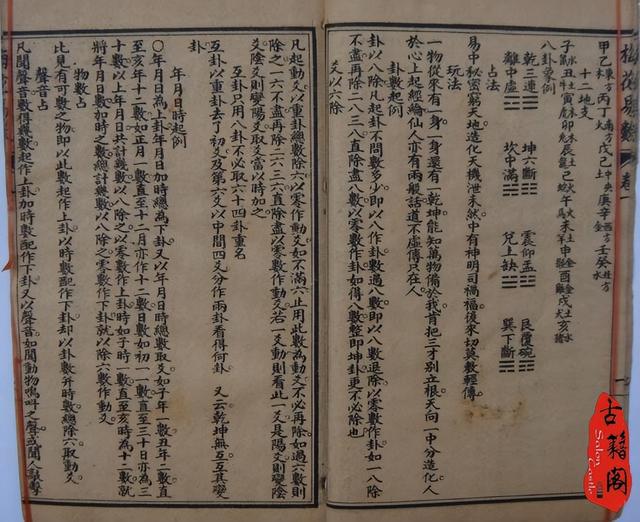 梅花易數
卷一
甲乙東方木 丙丁南方火 戊己中央土 庚辛西方金 壬癸北方水
十二地支
子水鼠 丑土牛 寅木虎 卯木兔 辰土龍 巳火蛇 午火馬 未土羊 申金猴 酉金雞 戌土犬 亥水豬
八卦象例
乾三連☰ 坤六斷☷ 震仰盂☳ 艮覆碗☶
離中虛☲ 坎中滿☵ 兌上缺☱ 巽下斷☴
占法
易中秘密窮天地造化天機泄未然中有神明司禍福後來切莫輕傳
玩法
一物從來有一身一身還有一乾坤能知萬物備於我肯把三才別立根天向一中分造化人
於心上起經綸仙人亦有兩般話道不虛傳只在人
卦數起例
卦以八除凡起卦不問數多少即以八作卦數過八數即以八數退除以零數作卦如一八除
不盡再除二八三八直除盡八數以零數作卦如得八數整即坤卦更不必除也
爻以六除
凡起動爻以重卦總數除六以零作動爻如不滿六止用此數為動爻不必再除如過六數則
除之一六不盡再除二六三六直除盡以零數作動爻若一爻動則看此一爻是陽爻則變陰
爻陰爻則變陽爻取爻當以時加之
互卦只用八卦不必取六十四卦重名
互卦以重卦去了初爻及第六爻以中間四爻分作兩卦看得何卦 又云乾坤無互互其變
卦
年月日時起例
年月日為上卦年月日加時總為下卦又以年月日時總數取爻如子年一數丑年二數直
至亥年十二數如正月一數直至十二月亦作十二數日數如初一一數直至三十日亦為三
十數以上年月日共計幾數以八除之以零數作上卦時如子時一數直至亥時為十二數就
將年月日數加時之數總計幾數以八除之零數作下卦就以除六數作動爻
物數占
比見有可數之物即以此數起作上卦以時數配作下卦却以卦數并時數總除六取動爻
聲音占
凡聞聲音數得幾數起作上卦加時數配作下卦又以聲音如聞動物鳴叫之聲或聞人敲擊
古籍閣